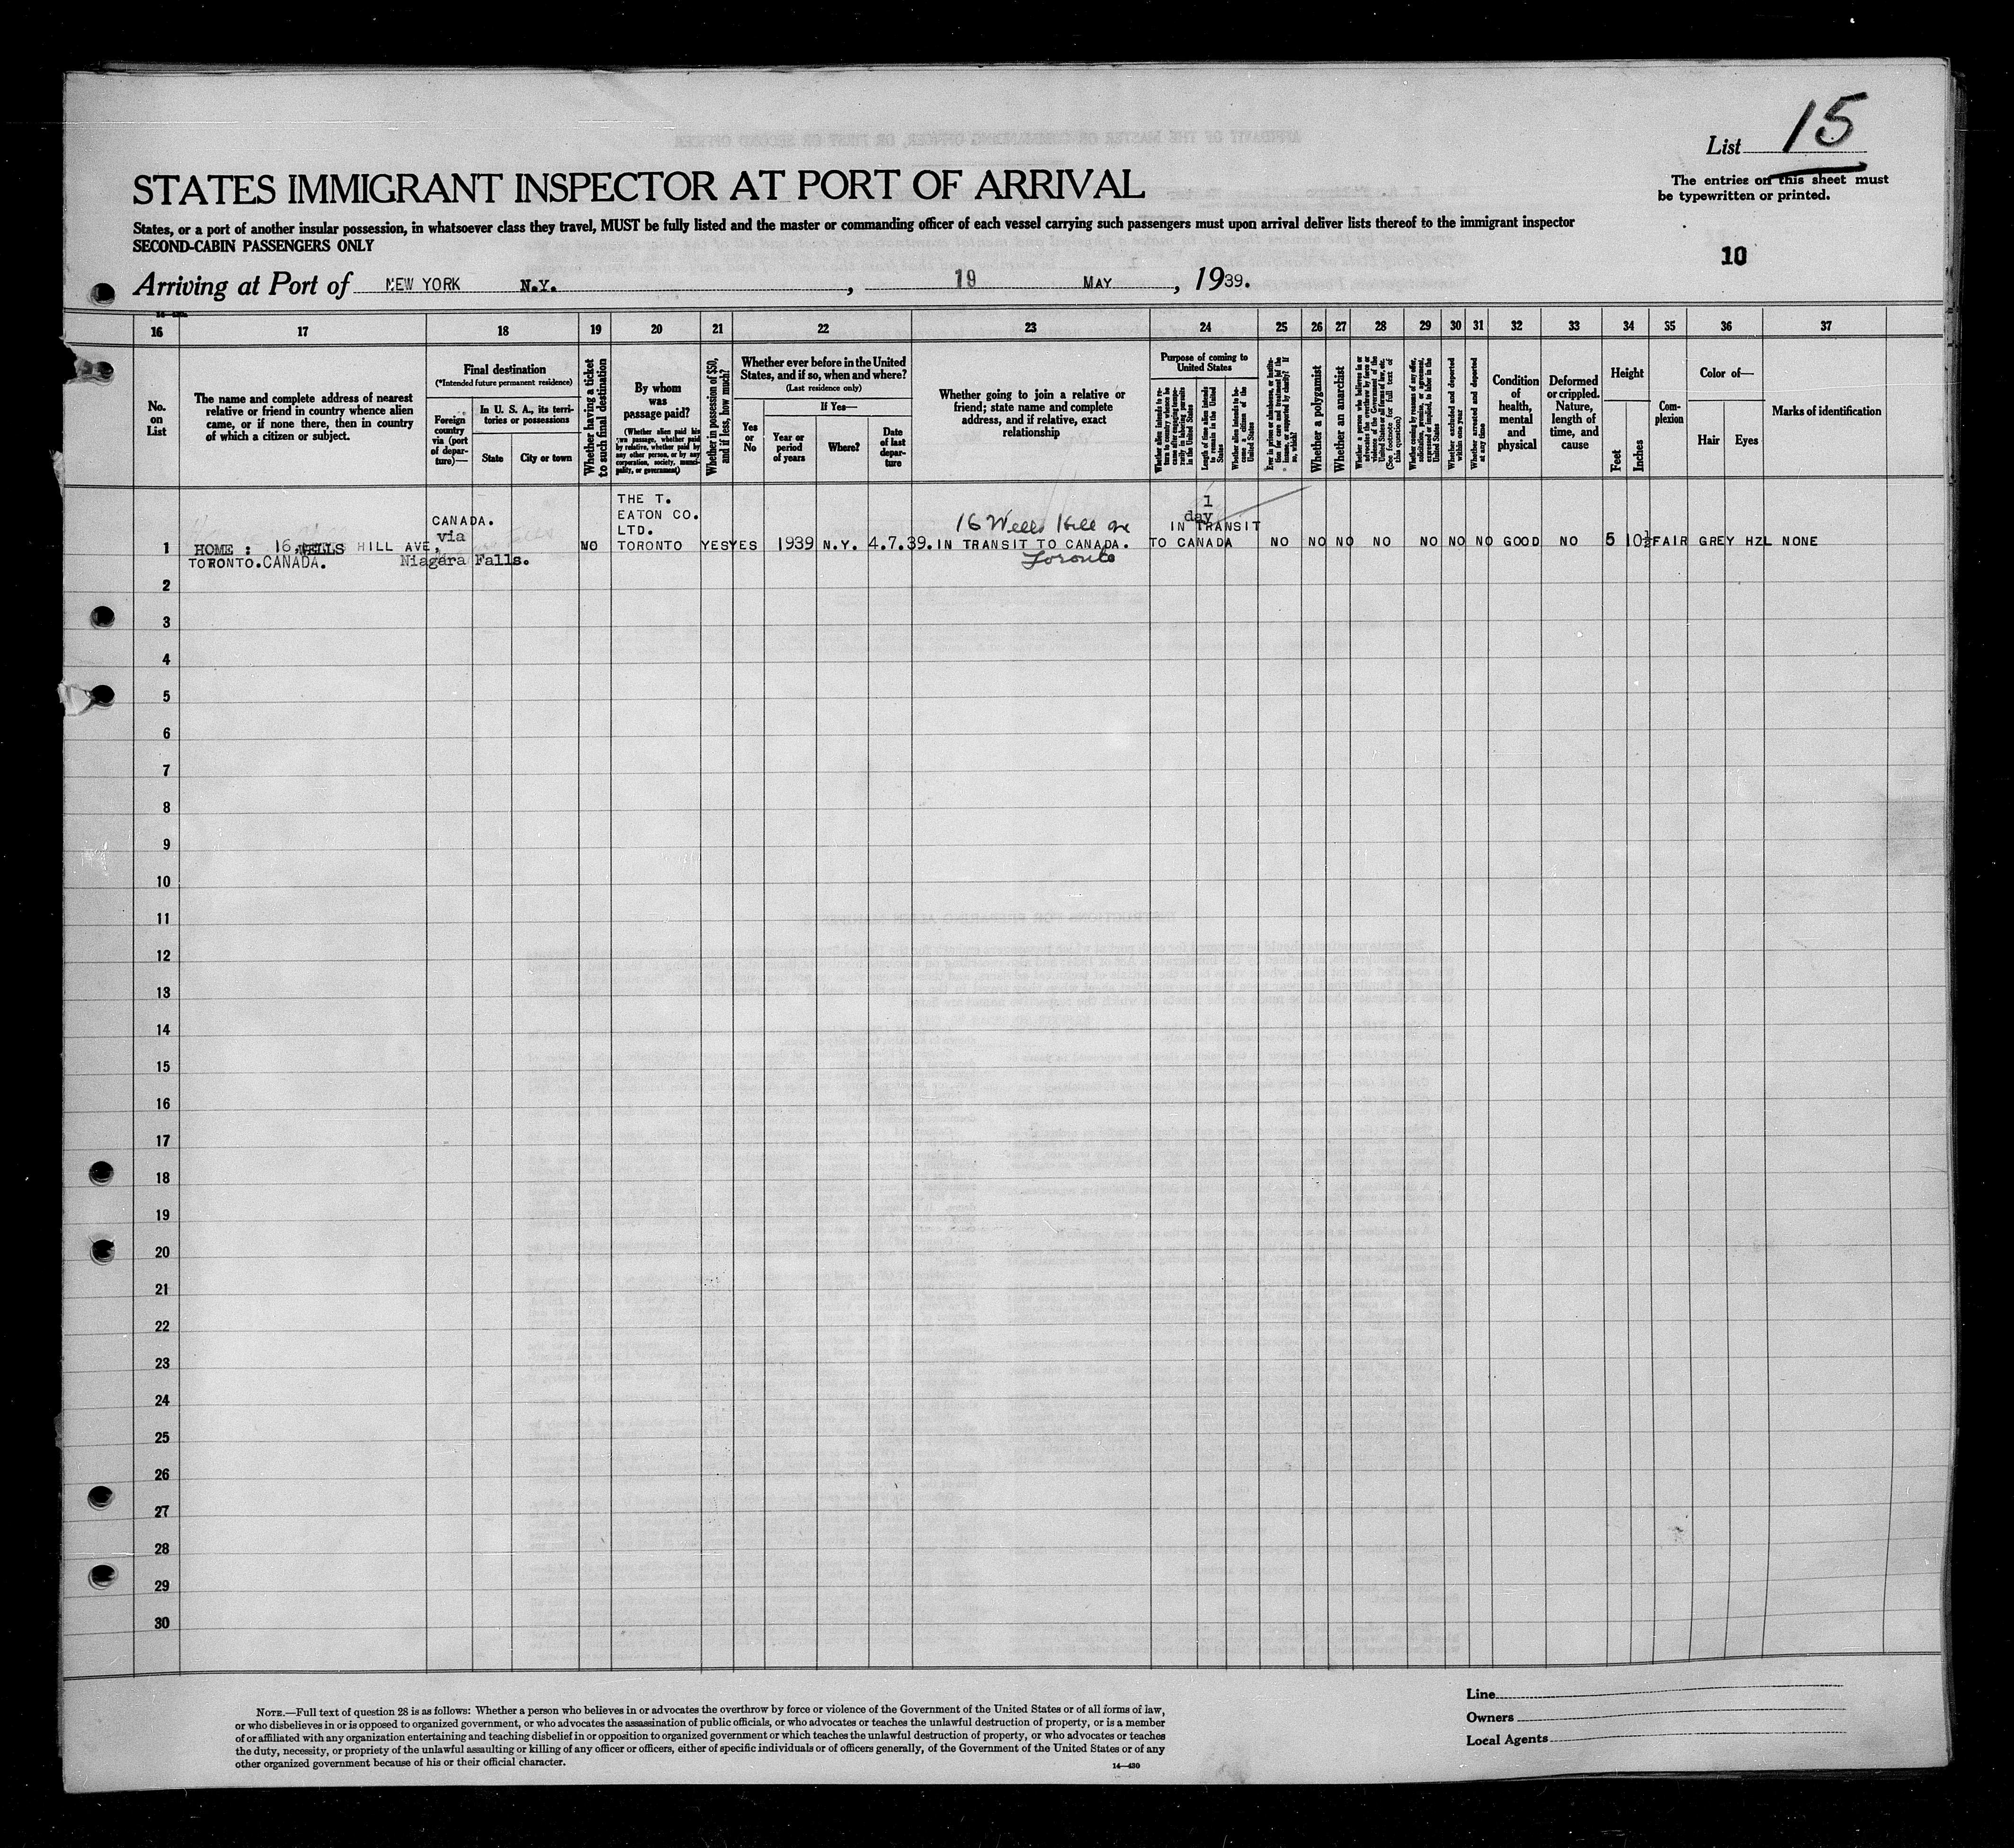 List 15
The entries on this sheet must
be typewritten or printed.
STATES IMMIGRANT INSPECTOR AT PORT OF ARRIVAL
States, or a port of another insular possession, in whatsoever class they travel, MUST be fully listed and the master or commanding officer of each vessel carrying such passengers must upon arrival deliver lists thereof to the immigrant inspector
SECOND-CABIN PASSENGERS ONLY
10
Arriving at Port of NEW YORK N.Y. , 19 MAY , 1939.
16 17 18 19 20 21 22 23 24 25 26 27 28 29 30 31 32 33 34 35 36 37
No.
on
List
The name and complete address of nearest
relative or friend in country whence alien
came, or if none there, then in country
of which a citizen or subject.
Final destination
(*Intended future permanent residence)
Foreign
country
via (port
of depar-
ture)—
In U. S. A., its terri-
tories or possessions
State
City or town
Whether having a ticket
to such final destination
By whom
was
passage paid?
(Whether alien paid his
own passage, whether paid
by relative, whether paid by
any other person, or by any
corporation, society, munici-
pality, or government)
Whether in possession of $50,
and if less, how much?
Whether ever before in the United
States, and if so, when and where?
(Last residence only)
Yes
or
No
If Yes—
Year or
period
of years
Where?
Date
of last
depar-
ture
Whether going to join a relative or
friend; state name and complete
address, and if relative, exact
relationship
Purpose of coming to
United States
Whether alien intends to re-
turn to country whence he
came after engaging tempo-
rarily in laboring pursuits
in the United States
Length of time alien intends
to remain in the United
States
Whether alien intends to be-
come a citizen of the
United States
Ever in prison or almshouse, or institu-
tion for care and treatment of the
insane, or supported by charity? If
so, which?
Whether a polygamist
Whether an anarchist
Whether a person who believes in or
advocates the overthrow by force or
violence of the Government of the
United States or all forms of law, etc.
(See footnote for full text of
this question)
Whether coming by reasons of any offer,
solicitation, promise, or agreement,
expressed or implied, to labor in the
United States
Whether excluded and deported
within one year
Whether arrested and deported
at any time
Condition
of
health,
mental
and
physical
Deformed
or crippled.
Nature,
length of
time, and
cause
Height
Feet
Inches
Com-
plexion
Color of—
Hair
Eyes
Marks of identification
CANADA.
via
Niagara Falls.
THE T.
EATON CO.
LTD.
TORONTO
1
day
16 Wells Hill Ave
Toronto
1 HOME : 16, WELLS HILL AVE,
TORONTO.CANADA.
NO YES YES 1939 N.Y. 4.7.39. IN TRANSIT TO CANADA.
IN TRANSIT
TO CANADA
NO NO NO NO NO NO NO GOOD NO 5 10½ FAIR GREY HZL NONE
2
3
4
5
6
7
8
9
10
11
12
13
14
15
16
17
18
19
20
21
22
23
24
25
26
27
28
29
30
NOTE.—Full text of question 28 is as follows: Whether a person who believes in or advocates the overthrow by force or violence of the Government of the United States or of all forms of law,
or who disbelieves in or is opposed to organized government, or who advocates the assassination of public officials, or who advocates or teaches the unlawful destruction of property, or is a member
of or affiliated with any organization entertaining and teaching disbelief in or opposition to organized government or which teaches the unlawful destruction of property, or who advocates or teaches
the duty, necessity, or propriety of the unlawful assaulting or killing of any officer or officers, either of specific individuals or of officers generally, of the Government of the United States or of any
other organized government because of his or their official character.
14—430
Line
Owners
Local Agents